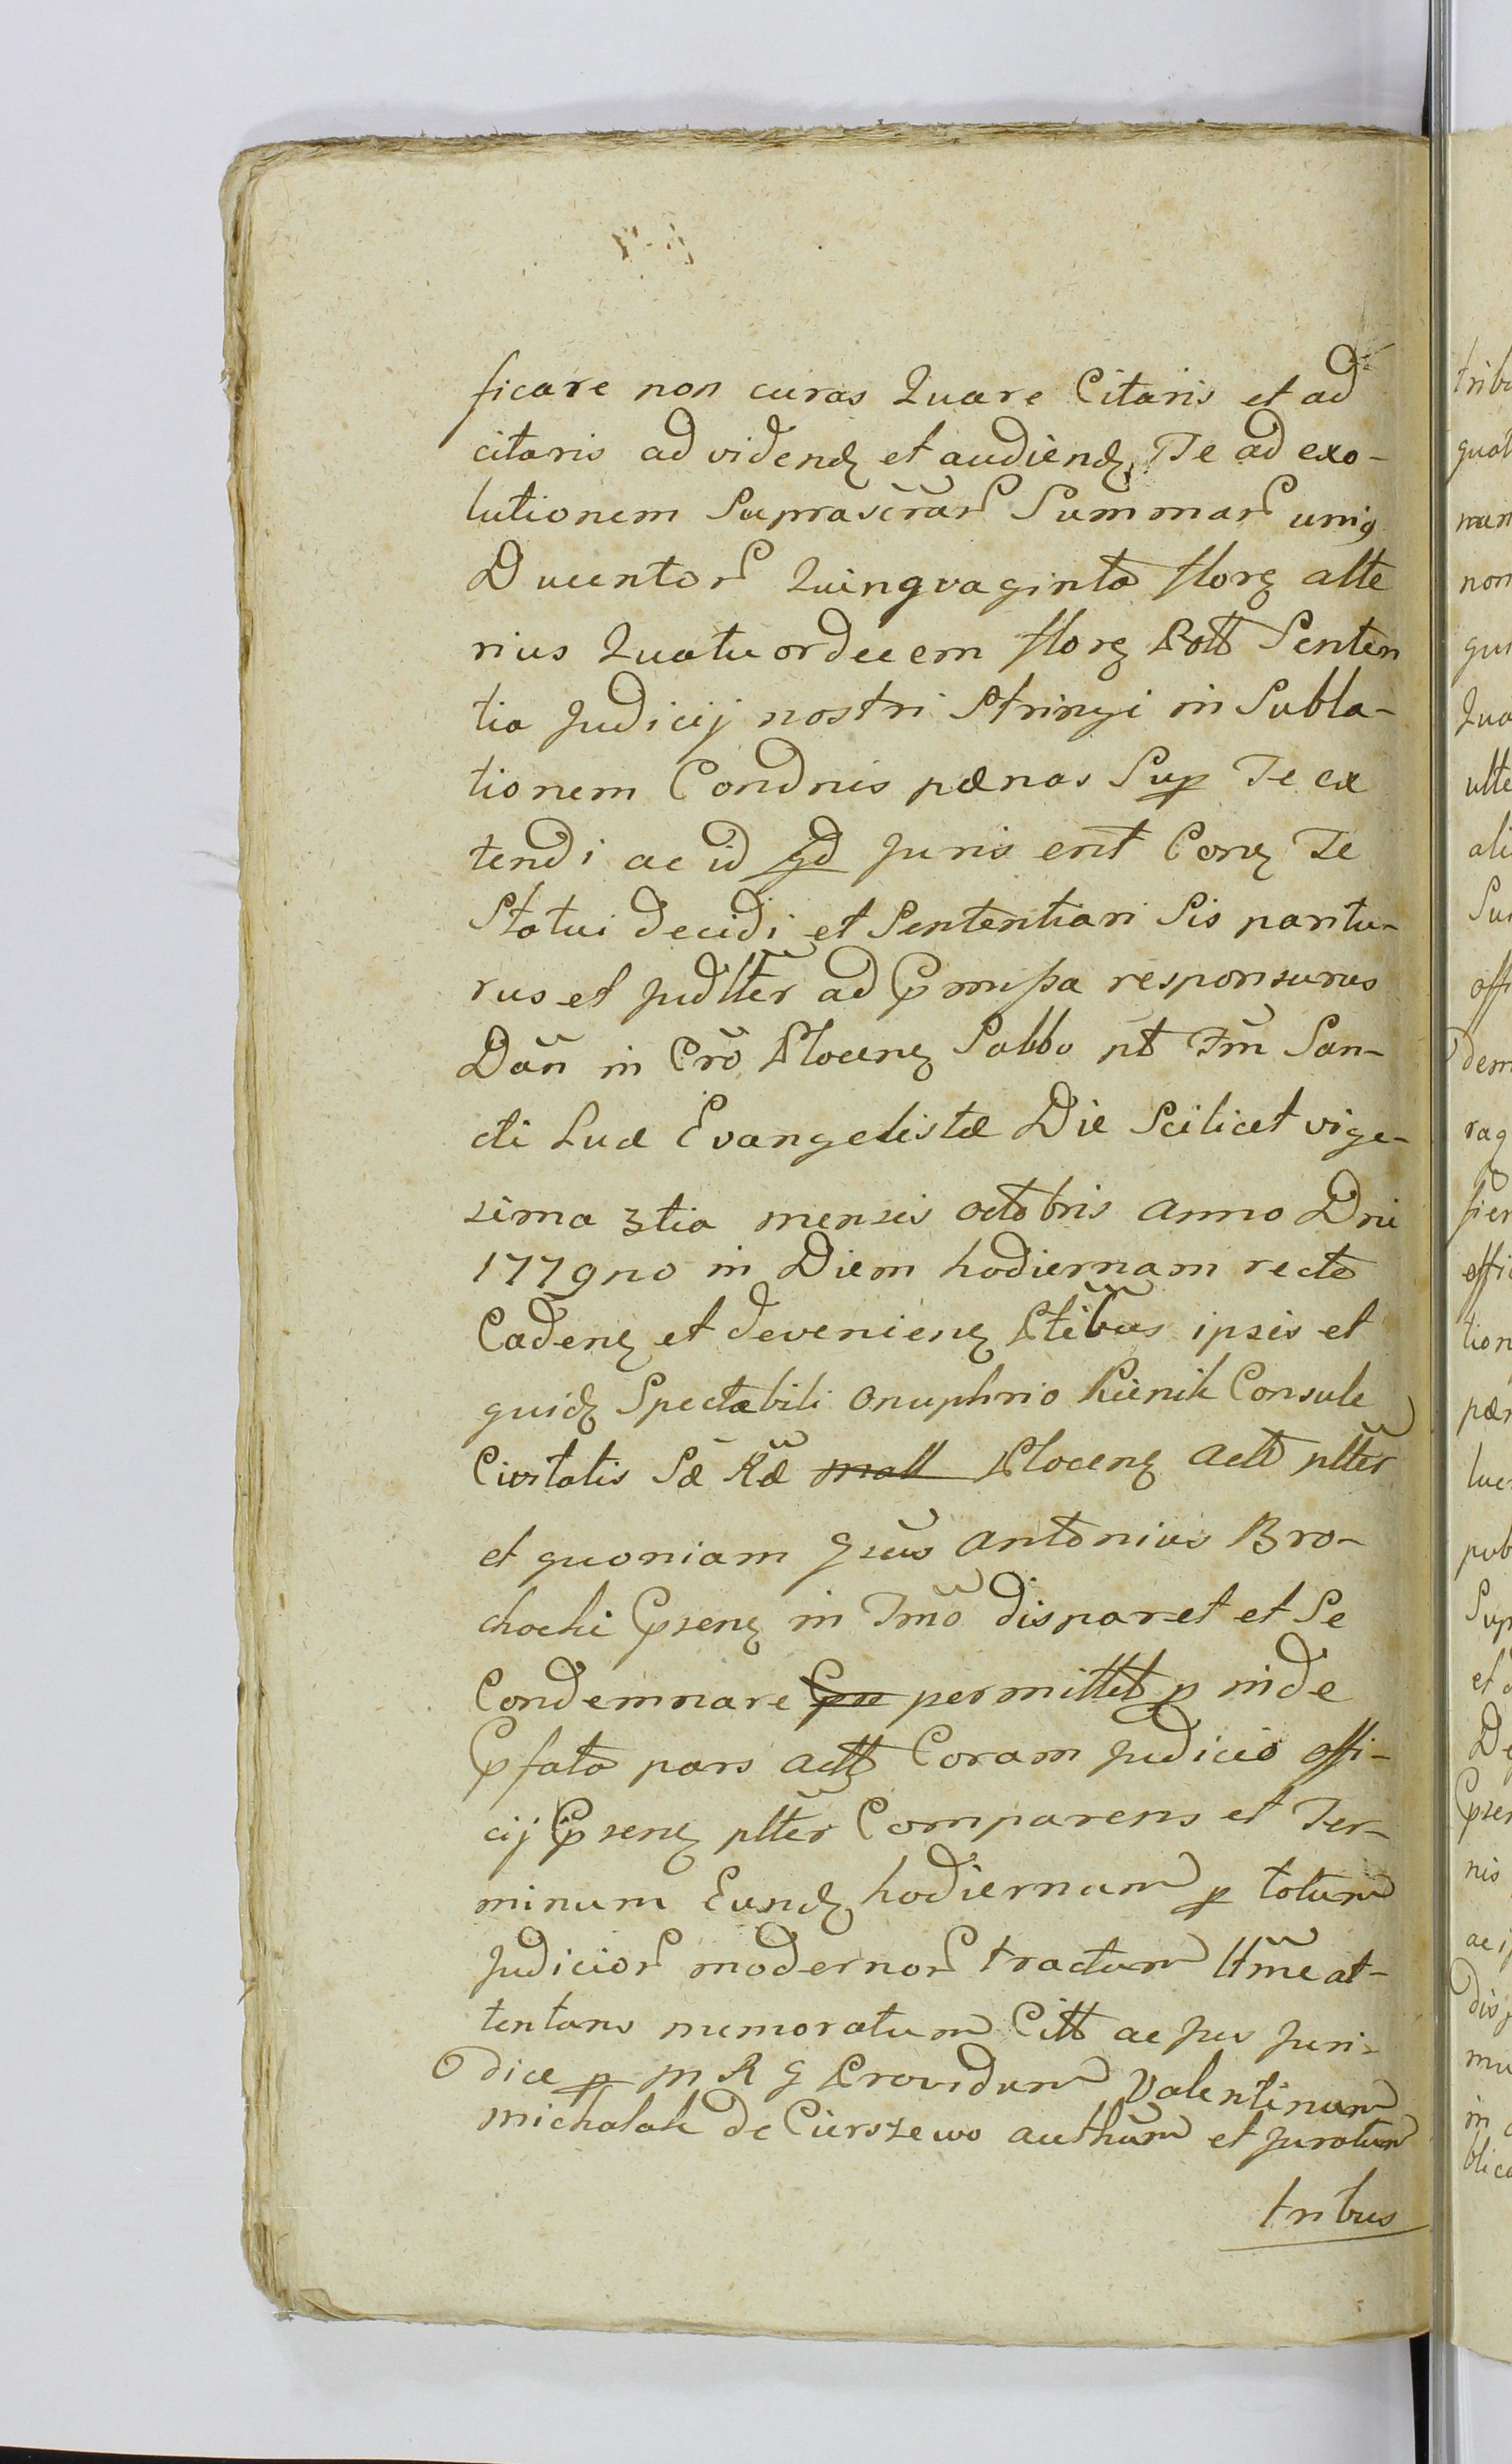 ficare non curas Quare Citaris et ad
citaris ad videndꝫ et audiendꝫ Te ad exo-
lutionem Suprascrar Summar unig
Ducentor Quinquaginta florꝫ alte
rius Quatuordecem florꝫ Poll Senten
tia Judicij nostri Stringi in Subla-
tionem Condnis pænas Sup Te ex
tendi ac id qd Juris erit Conꝫ Te
Statui decidi et Sententiari Sis paritu-
rus et Judllter ad p̃missa responsurus
Dan̄ in Crō Plocenꝫ Sabbo pt Fm̄ San-
cti Lucæ Evangelistæ Die Scilicet vige-
sima 3tia mensis octobris anno Dni
1779no in Diem hodiernam recte
Cadenꝫ et devenienꝫ Ptibus ipsis et
quidꝫ Spectabili Onuphrio Kienik Consule
Civitatis Sæ Ræ mall Plocenꝫ actt pltter
et quoniam Gsus Antonius Bro-
chocki p̃senꝫ in Tmō disparet et Se
Condemnare pn permittet p inde
p̃fata pars actt Coram Judicio offi-
cij p̃senꝫ pltter Comparens et Ter-
minum Eundꝫ hodiernum p totum
Judicior modernor tractum lttme at-
tentans memoratum Citt ac jus Juri-
dice p M R G Providum Valentinum
michalak de Cierszewo authum et Juratum
tribus